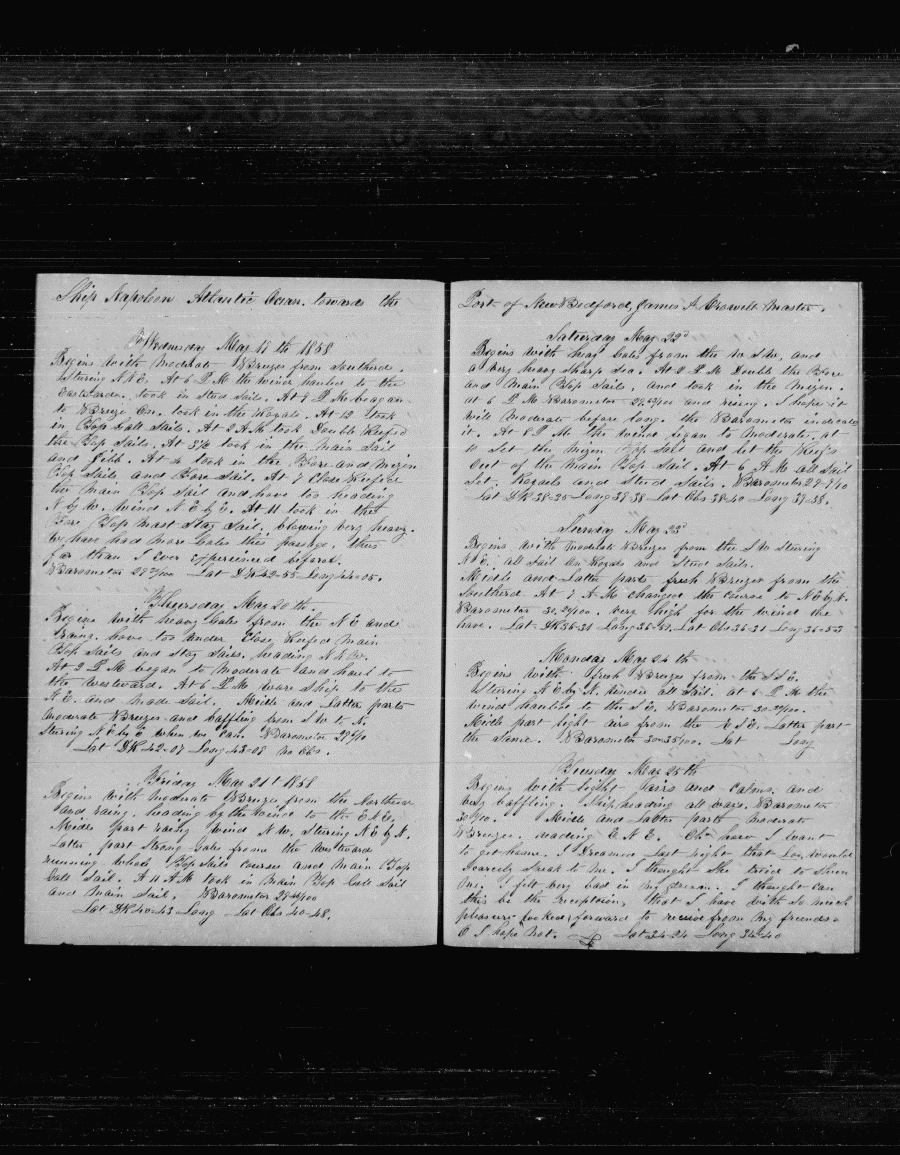 Ship Napoleon Atlantic Ocean towards the
Wednesday May 19th 1858
Begins with Moderate Breeze from Southerd.
Stering N N E. At 6 P M the wind hauled to the
Eastward. took in Stud Sails. At 9 P M began
to Breeze On. took in the Royals. At 12 took
in Top Gall Sails. At 2 A M took Double Reefed
the Top Sails. At 3½ took in the Main Sail
and Jibb. At 4 took in the Fore and Mizen
Top Sails and Fore Sail. At 7 Close Reefed
the Main Top Sail and hove too heading
N by W. wind N E by E. At 11 took in the
Fore Top Mast Stay Sail. blowing very heavy.
We have had more Gales this passage, thus
far than I ever experienced before.
Barometer 29 /100 Lat DR 42-55 Long 44-05.
Thursday May 20th
Begins with heavy Gales from the N E and
rainy. hove too under Close Reefed Main
Top Sails and Stay Sails, heading N N W.
At 2 P M began to Moderate and haul to
the Westward. At 6 P M ware Ship to the
N E. and Made Sail. Middle and Latter parts
Moderate Breezes and baffling from S W to N.
Stering N E by E when we Can. Barometer 29 /10
Lat DR 42-07 Long 43-08 No Obs.
Friday May 21st 1858
Begins with Moderate Breeze from the Northward
and rainy. heading by the Wind to the E N E.
Middle part rainy Wind N W, Stering N E by N.
Latter part Strong Gales from the Westward
running whole Top Sails courses and Main Top
Gall Sail. At 11 A M took in Main Top Gall Sail
and Main Sail. Barometer 29 /100
Lat DR 40-43 Long Lat Obs 40-48.
Port of New Bedford, James S Crowell Master.
Saturday May 22d
Begins with heavy Gales from the W S W, and
a very heavy Sharp Sea. At 2 P M Double the Fore
and Main Top Sails, and took in the Mizen.
at 6 P M Barometer 29 /100 and rising. I hope it
will Moderate before long. the Barometer indicates
it. At 8 P M the Wind began to Moderate, at
10 Set the Mizen Top Sail and let the Reefs
Out of the Main Top Sail. At 6 A M all Sail
Set, Royals and Stud Sails. Barometer 29 /10
Lat DR 38-30 Long 39-38 Lat Obs 38-40 Long 39-38.
Sunday May 23d
Begins with Moderate Breezes from the S W Stering
N E. all Sail On Royals and Stud Sails.
Middle and Latter parts fresh Breezes from the
Southerd At 7 A M changed the Course to N E by N.
Barometer 30.20/100. very high for the wind we
have. Lat DR 36-31 Long 36-51. Lat Obs 36-31 Long 36-53
Monday May 24th
Begins with fresh Breezes from the S S E.
Stering N E by N. under all Sail. at 6 P M the
wind hauled to the S E. Barometer 30 /100.
Middle part light airs from the E S E. Latter part
the same. Barometer 30-35/100. Lat Long
Tuesday May 25th
Begins with light Airs and Calms. and
very baffling. Ship heading all ways. Barometer
30 /100. Middle and Latter parts moderate
Breezes. heading E N E. Oh how I want
to get home. I Dreamed last night that Lou, would
scarcely speak to me. I thought She tried to Shun
me. I felt very bad in my dream. I thought can
this be the reception, that I have with so much
pleasure looked forward to receive from my friends.
O I hope Not. Lat 34-24 Long 34-40